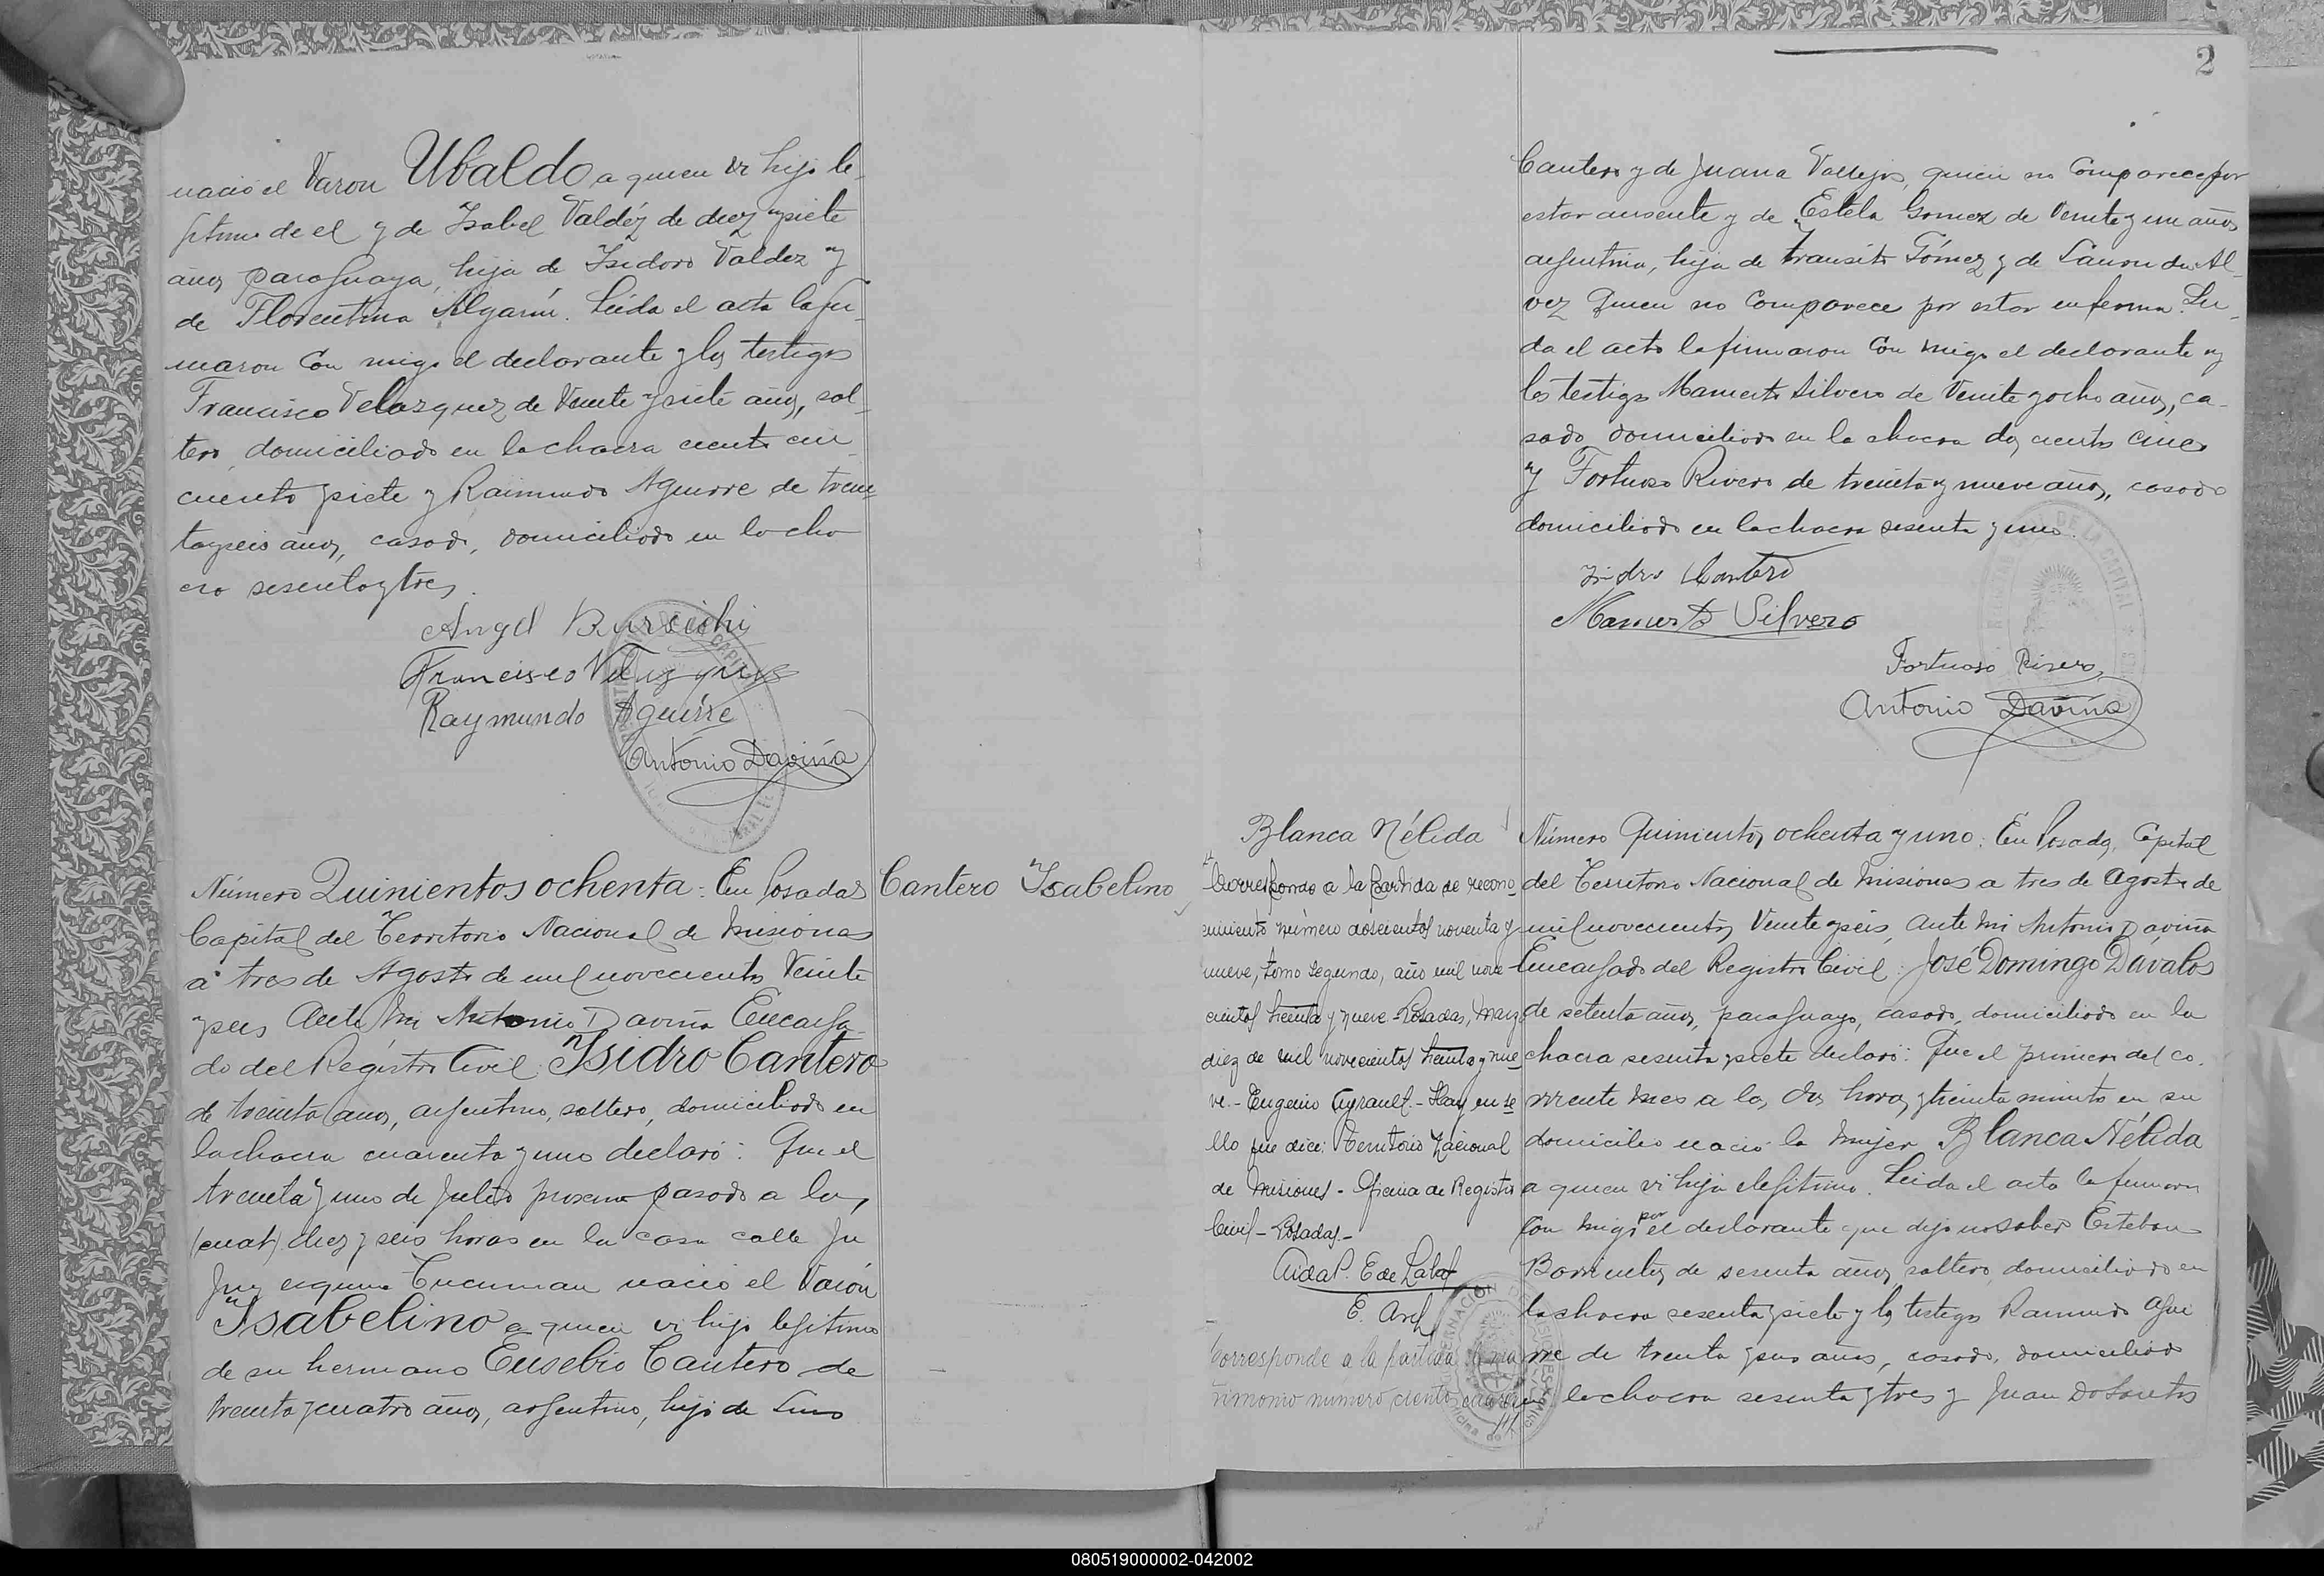 nació el Varon Ubaldo a quien vi hijo le-
gitimo de el y de Isabel Valdéz de diez y siete
años paraguaya, hija de Isidoro Valdez y
de Florentina Algarin. Leida el acta la fir-
maron con migo el declarante y los testigos
Francisco Velazquez de Veinte y siete años, sol-
tero, domiciliado en la chacra ciento cin-
cuenta y siete y Raimundo Aguirre de trein-
ta y seis años, casado, domiciliado en la cha
cra sesenta y tres.
Angel
Francisco Velazquez
Raymundo Aguirre
Antonio Daviña
Número Quinientos ochenta: En Posadas
Capital del Territorio Nacional de Misiones
a tres de Agosto de mil novecientos Veinte
y seis Ante mi Antonio Daviña Encarga
do del Registro Civil: Isidro Cantero
de treinta años, argentino, soltero, domiciliado en
la chacra cuarenta y uno declaró: Que el
treinta y uno de Julio proximo pasado a las,
(cuat) diez y seis horas en la casa calle Ju
juy esquina Tucuman nació el Varón
Isabelino a quien vi hijo legitimo
de su hermano Eusebio Cantero de
treinta y cuatro años, argentino, hijo de Lino
Cantero Isabelino
2
Cantero y de Juana Vallejos, quien no comparece por
estar ausente y de Estela Gomez de Veinte y un años
argentina, hija de Transito Gómez y de Al-
vez quien no comparece por estar enferma. Lei-
da el acta la firmaron con migo el declarante y
los testigos Mamerto Silvero de Veinte y ocho años, ca-
sado domiciliado en la chacra dos cientos cinco
y Fortuoso Rivero de treinta y nueve años, casado
domiciliado en la chacra sesenta y uno.
Isidro Cantero
Mamerto Silvero
Fortuoso Rivero
Antonio Daviña
Blanca Nélida
Corresponde a la Partida de recono-
cimiento número doscientos noventa y
nueve, tomo segundo, año mil nove-
cientos treinta y nueve.- Posadas, Marzo
diez de mil novecientos treinta y nue-
ve.- Eugenio Ayrault.- Hay un se
llo que dice: Territorio Nacional
de Misiones - Oficina de Registro
Civil - Posadas.-
Aida P. E de
E. Arch
Corresponde a la partida
rimonio número ciento
Número Quinientos ochenta y uno: En Posadas, Capital
del Territorio Nacional de Misiones a tres de Agosto de
mil novecientos Veinte y seis, ante mi Antonio Daviña
Encargado del Registro Civil: José Domingo Dávalos
de setenta años, paraguayo, casado, domiciliado en la
chacra sesenta y siete declaró: Que el primero del co-
rriente mes a las, dos horas y treinta minutos en su
domicilio nació la mujer Blanca Nélida
a quien vi hija ilegitima. Leida el acta la firmaron
con migo por el declarante que dijo no saber Esteban
Barrientos, de sesenta años, soltero, domiciliado en
la chacra sesenta y siete y los testigos Raimundo Agui
rre de treinta y seis años, casado, domiciliado
en la chacra sesenta y tres y Juan DoSantos
080519000002-042002